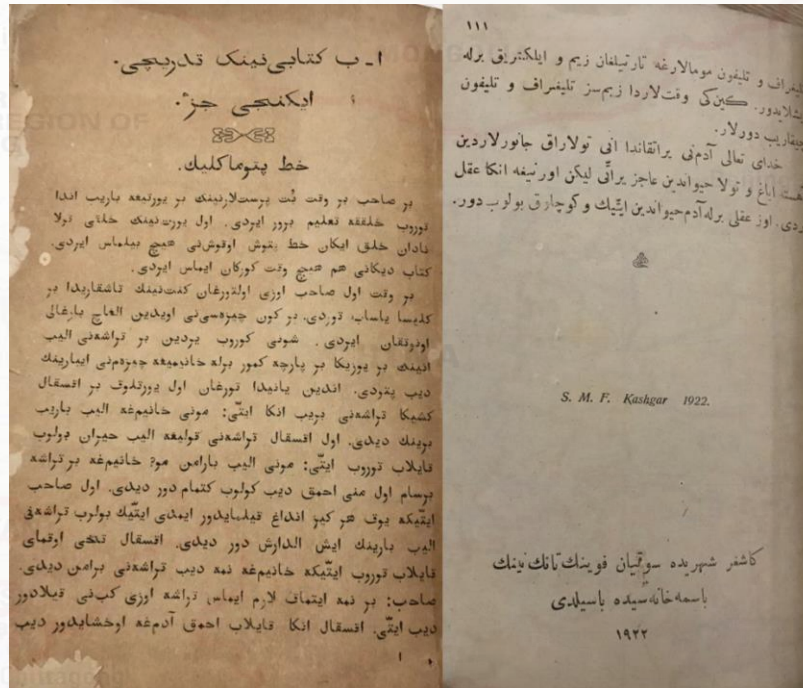 ا-ب كتابى‌نينک تدريچى.
ايكنجى جزٔ.
خط پتوماكليك.
بر صاحب بر وقت بُت پرست‌لارنينك بر يورتيغه باريب اندا
توروب خلققه تعليم برور ايردى. اول يورت‌نينك خلقى تولا
نادان خلق ايكان خط پتوش اوقوش‌نى هيچ بيلماس ايردى.
كتاب ديكانى هم هيچ وقت كوركان ايماس ايردى.
بر وقت اول صاحب اوزى اولتورغان كنت‌نينك تاشقاريدا بر
كليسا ياساب توردى. بر كون چيزه‌سى‌نى اويدين الغاچ بارغالى
اونوتقان ايردى. شونى كوروب يردين بر تراشه‌نى اليب
انينك بر يوزيكا بر پارچه كمور برله خانيميغه چيزه‌م‌نى ايبارينك
ديب پتودى. اندين يانيدا تورغان اول يورتلوق بر اقسقال
كشيكا تراشه‌نى بريب انكا ايتّى: مونى خانيم‌غه اليب باريب
برينك ديدى. اول اقسقال تراشه‌نى قوليغه اليب حيران بولوب
قايلاب توروب ايتّى: مونى اليب بارامن مو؟ خانيم‌غه بر تراشه
برسام اول منى احمق ديب كولوب كتمام دور ديدى. اول صاحب
ايتّيكه يوق هر كيز انداغ قيلمايدور ايمدى ايتّيك بولوب تراشه‌نى
اليب بارينك ايش الدارش دور ديدى. اقسقال تخى اوقماى
قايلاب توروب ايتّيكه خانيم‌غه نمه ديب تراشه‌نى برامن ديدى.
صاحب: بر نمه ايتماق لازم ايماس تراشه اوزى كب‌نى قيلادور
ديب ايتّى. اقسقال انكا قايلاب احمق آدم‌غه اوخشايدور ديب
١
١١١
تليغراف و تليفون مومالارغه تارتيلغان زيم و ايلكتريق برله
ايشلايدور. كين‌كى وقت‌لاردا زيم‌سز تليغراف و تليفون
چيقاريب دورلار.
خداى تعالى آدم‌نى يراتقاندا انى تولاراق جانورلاردين
هست اياغ و تولا حيواندين عاجز يراتّى ليكن اورنيغه انكا عقل
بردى. اوز عقلى برله آدم حيواندين ايتّيك و كوچلرق بولوب دور.
S. M. F. Kashgar 1922.
كاشغر شهريده سوقيان فوينك تانك نينك
باسمه خانه سيده باسيلدى
١٩٢٢